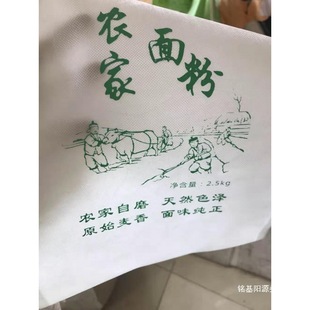 农家面粉
净含量：2.5kg
农家自磨 天然色泽
原始麦香 面味纯正
铭基阳源